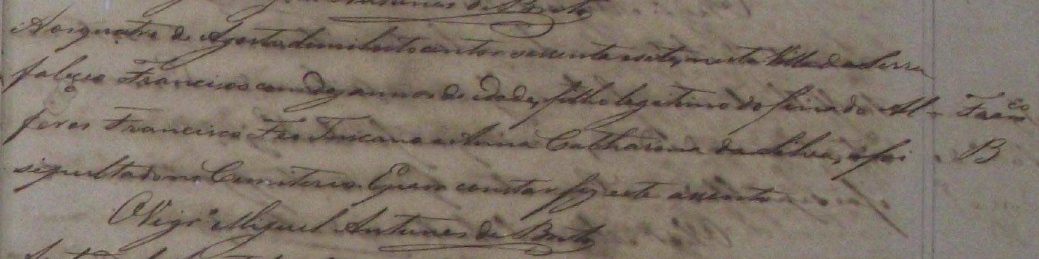 Antunes de Brito
Aos quatro de Agosto de mil oito centos secenta e sete, nesta Villa da Serra
faleceo Francisco com dez annos de idade, filho legitimo do finado Al- Fran.co
feres Francisco Toscano e Anna Catharina da Silva, e foi B
sepultado no Cemiterio. E para constar fiz este assento
O Vigr.o Miguel Antunes de Brito